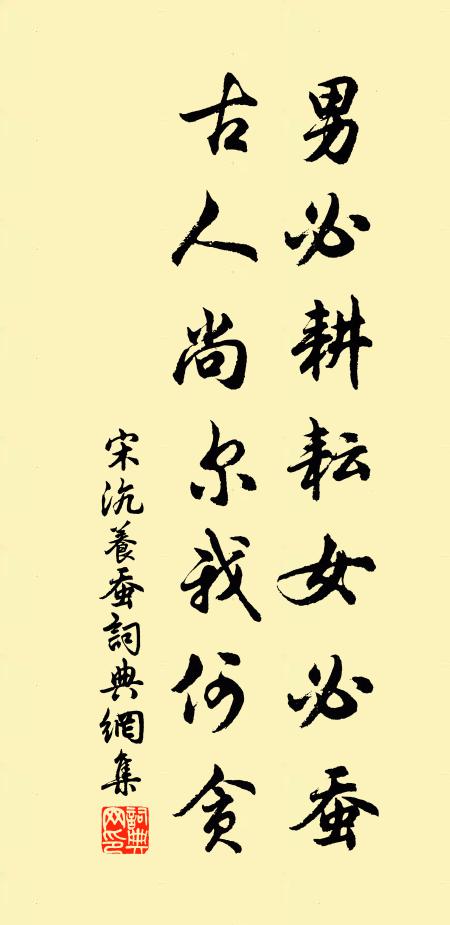 男必耕耘女必蚕
古人尚尔我何贪
宋沆養蚕詞典網集
詞典网印